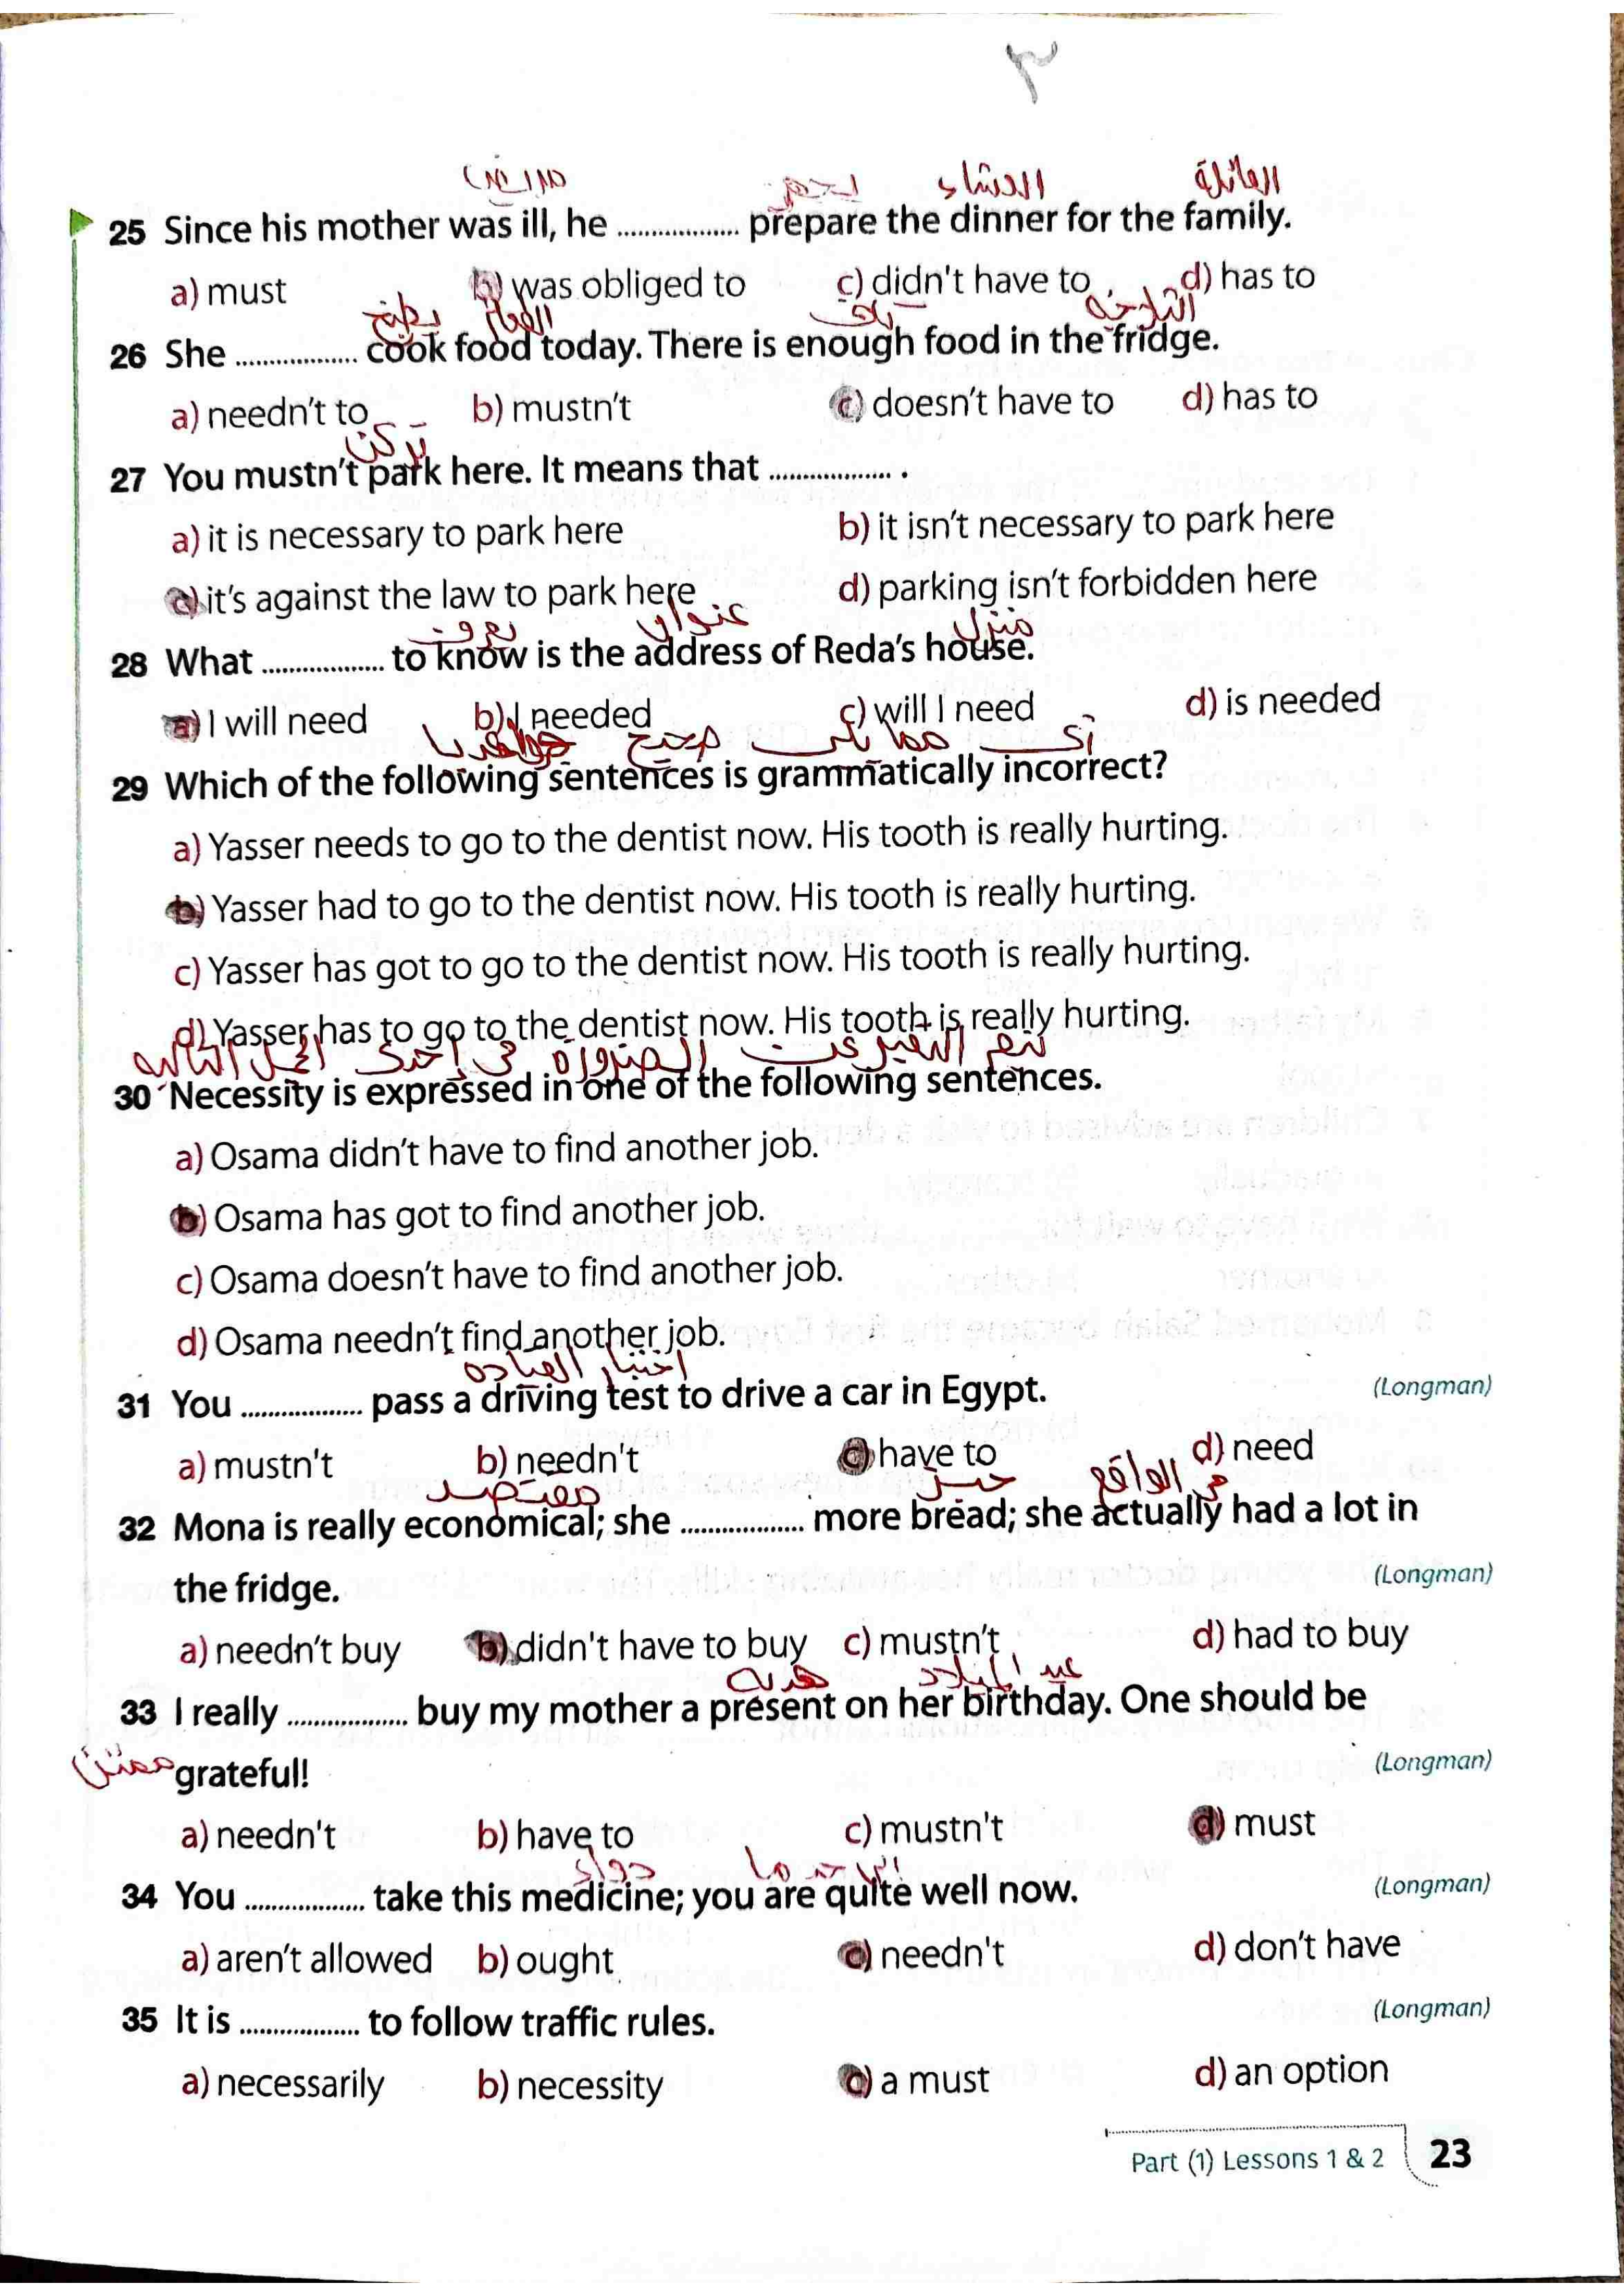 ٣
مريض لتحضير العشاء العائلة
25 Since his mother was ill, he .................. prepare the dinner for the family.
a) must b) was obliged to c) didn't have to d) has to
يطبخ الطعام الثلاجة
26 She .................. cook food today. There is enough food in the fridge.
a) needn't to b) mustn't c) doesn't have to d) has to
تركن
27 You mustn't park here. It means that .................. .
a) it is necessary to park here b) it isn't necessary to park here
c) it's against the law to park here d) parking isn't forbidden here
عنوان منزل
28 What .................. to know is the address of Reda's house.
a) I will need b) I needed c) will I need d) is needed
صحيح
29 Which of the following sentences is grammatically incorrect?
a) Yasser needs to go to the dentist now. His tooth is really hurting.
b) Yasser had to go to the dentist now. His tooth is really hurting.
c) Yasser has got to go to the dentist now. His tooth is really hurting.
d) Yasser has to go to the dentist now. His tooth is really hurting.
الضرورة
30 Necessity is expressed in one of the following sentences.
a) Osama didn't have to find another job.
b) Osama has got to find another job.
c) Osama doesn't have to find another job.
d) Osama needn't find another job.
اختبار القياده
31 You .................. pass a driving test to drive a car in Egypt. (Longman)
a) mustn't b) needn't c) have to d) need
خبز فى الواقع
32 Mona is really economical; she .................. more bread; she actually had a lot in
the fridge. (Longman)
a) needn't buy b) didn't have to buy c) mustn't d) had to buy
هديه عيد الميلاد
33 I really .................. buy my mother a present on her birthday. One should be
ممتن grateful! (Longman)
a) needn't b) have to c) mustn't d) must
دواء
34 You .................. take this medicine; you are quite well now. (Longman)
a) aren't allowed b) ought c) needn't d) don't have
35 It is .................. to follow traffic rules. (Longman)
a) necessarily b) necessity c) a must d) an option
Part (1) Lessons 1 & 2 23